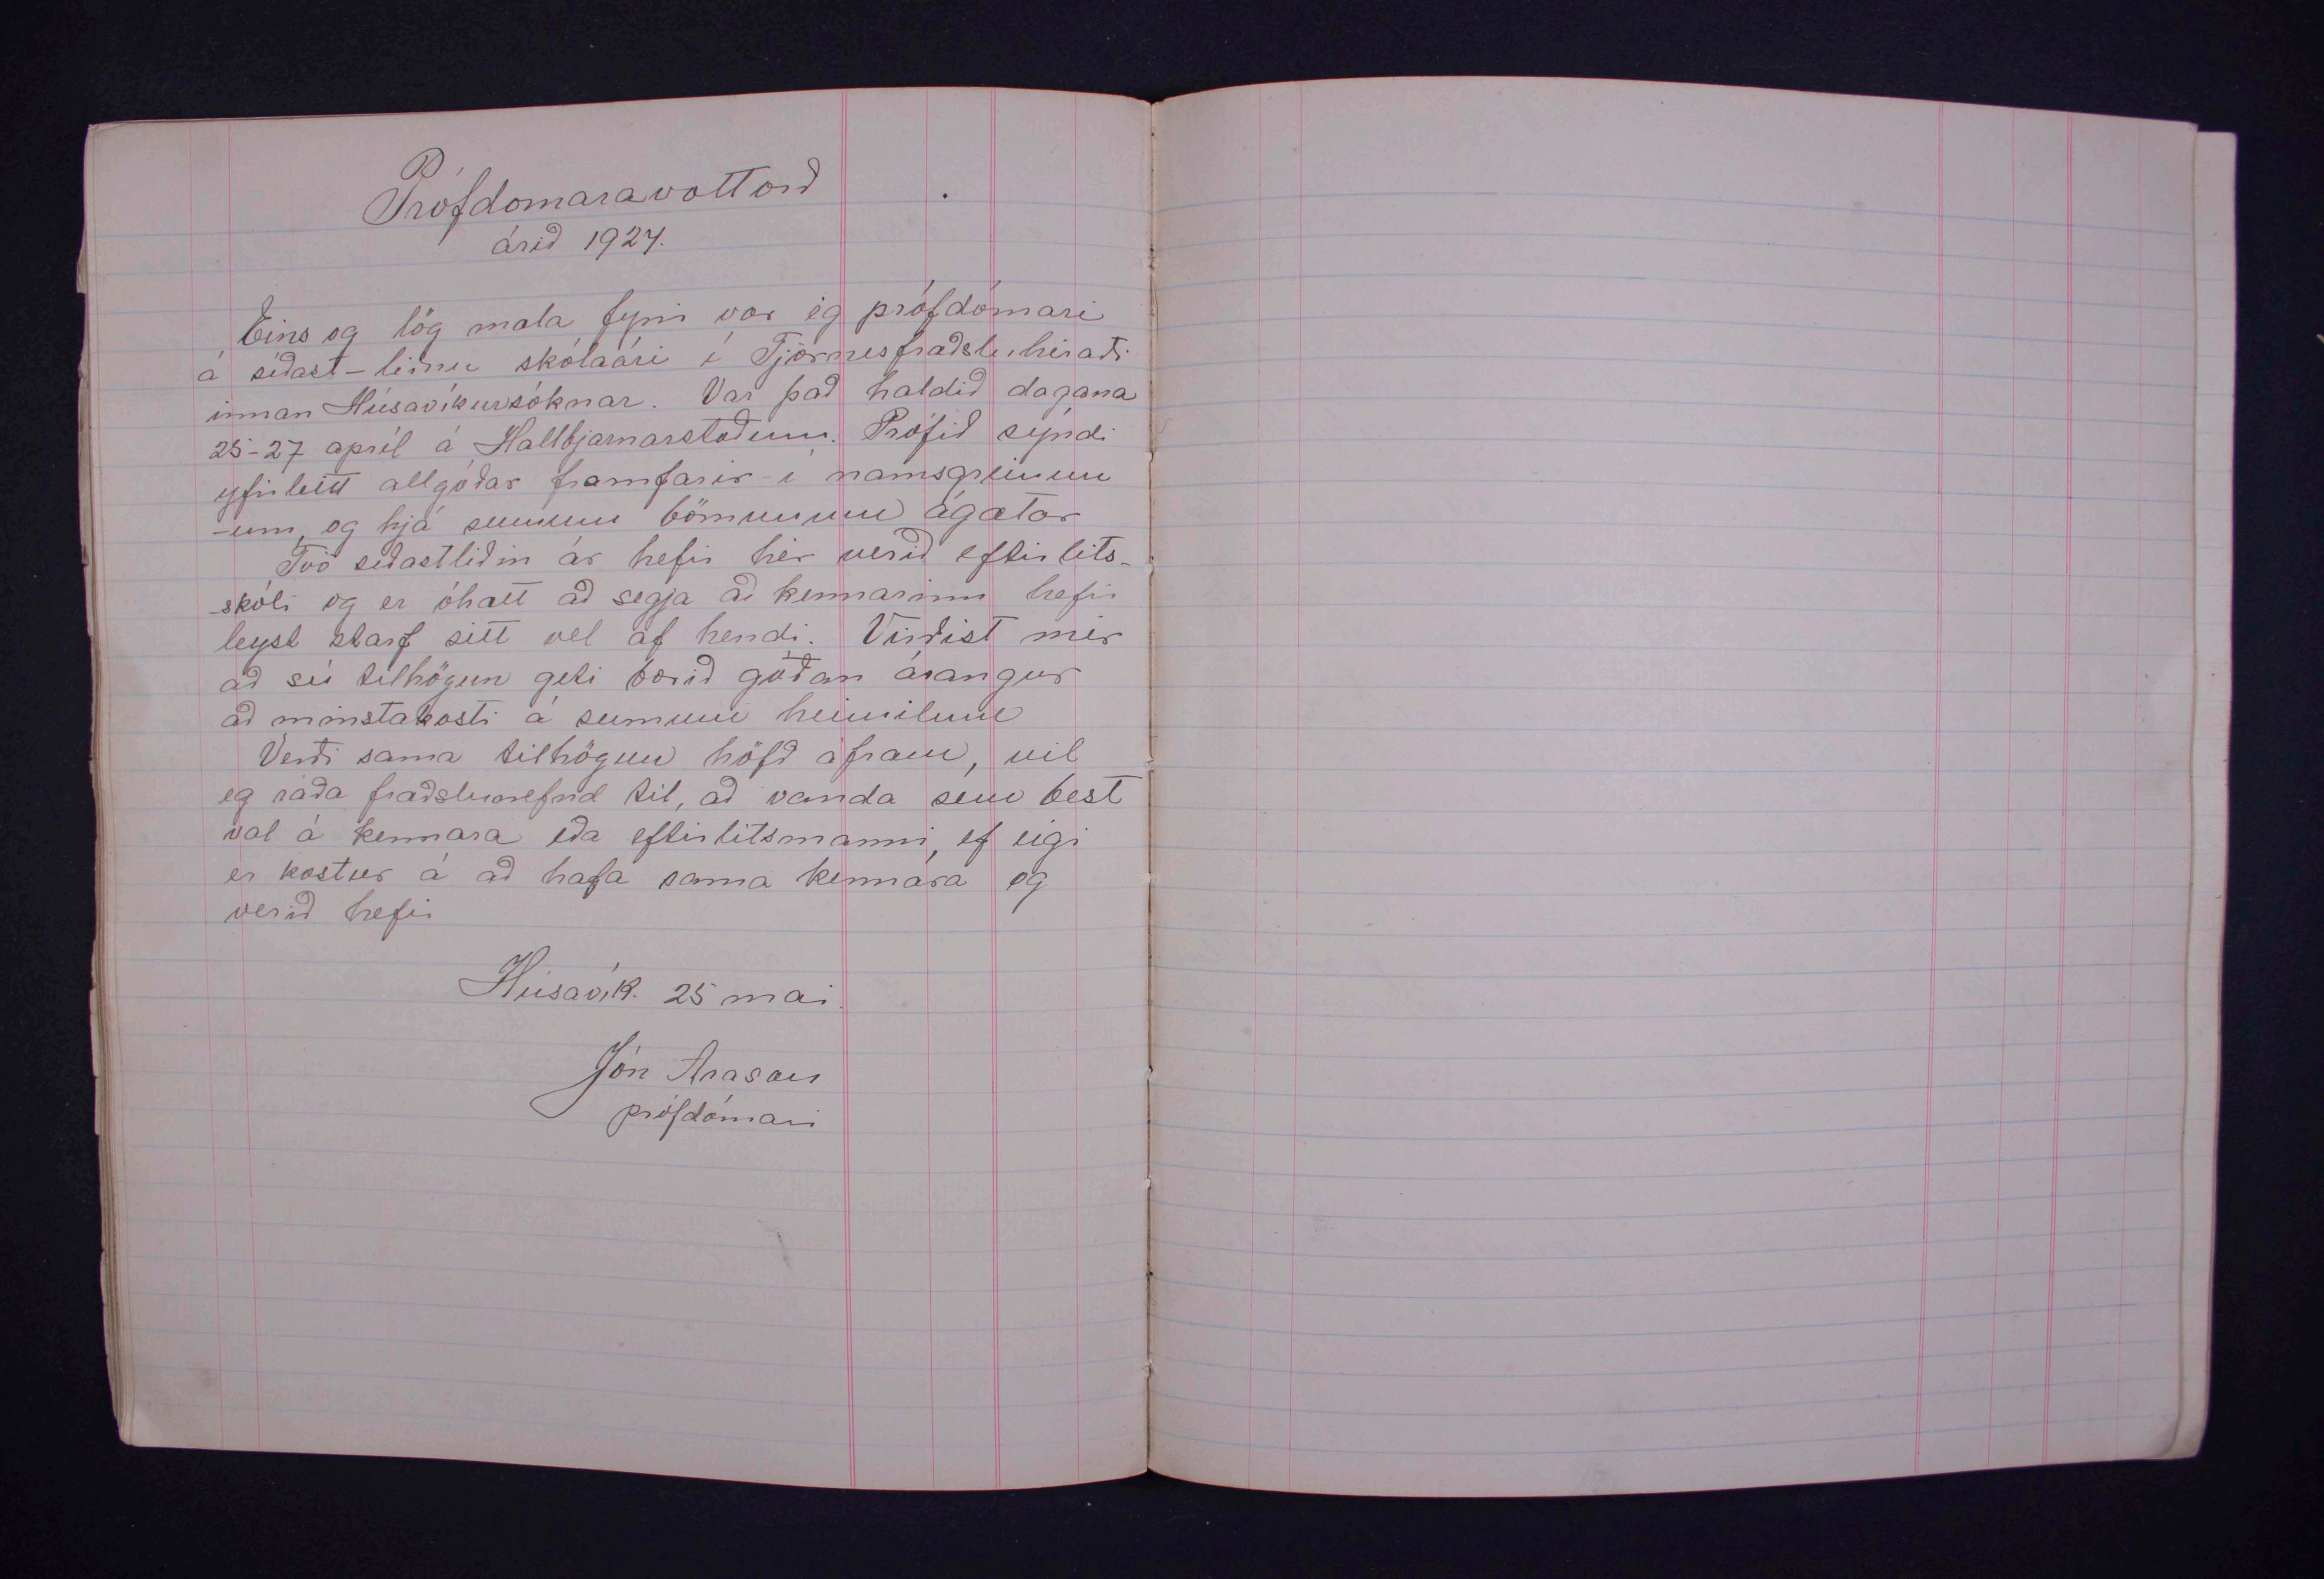 Prófdómaravottorð
árið 1927.
Eins og lög mæla fyrir var ég prófdómari
á síðast-liðnu skólaári í Tjörnesfræðsluhéraði
innan Húsavíkursóknar. Var það haldið dagana
25-27 apríl á Hallbjarnarstöðum. Prófið sýndi
yfirleitt allgóðar framfarir í námsgreinun
-um, og hjá sumum börnunum ágætar
Tvö síðastliðin ár hefir hér verið eftirlits-
-skóli og er óhætt að segja að kennarinn hefir
leyst starf sitt vel af hendi. Virðist mér
að sú tilhögun geti borið góðan árangur
að minstakosti á sumum heimilum
Verði sama tilhögun höfð áfram, vil
eg ráða fræðslunefnd til, að vanda sem best
val á kennara eða eftirlitsmanni, ef eigi
er kostur á að hafa sama kennara og
verið hefir
Húsavík. 25 mai.
Jón Arason
prófdómari